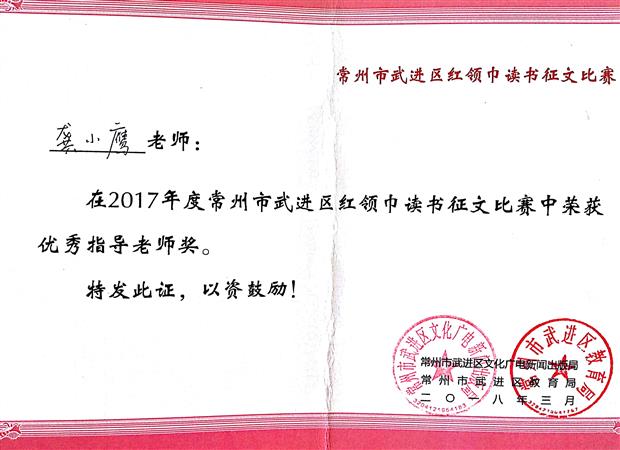 常州市武进区红领巾读书征文比赛
龚小鹰 老师：
在2017年度常州市武进区红领巾读书征文比赛中荣获
优秀指导老师奖。
特发此证，以资鼓励！
常州市武进区文化广电新闻出版局
常州市武进区教育局
二〇一八年三月
常州市武进区教育局